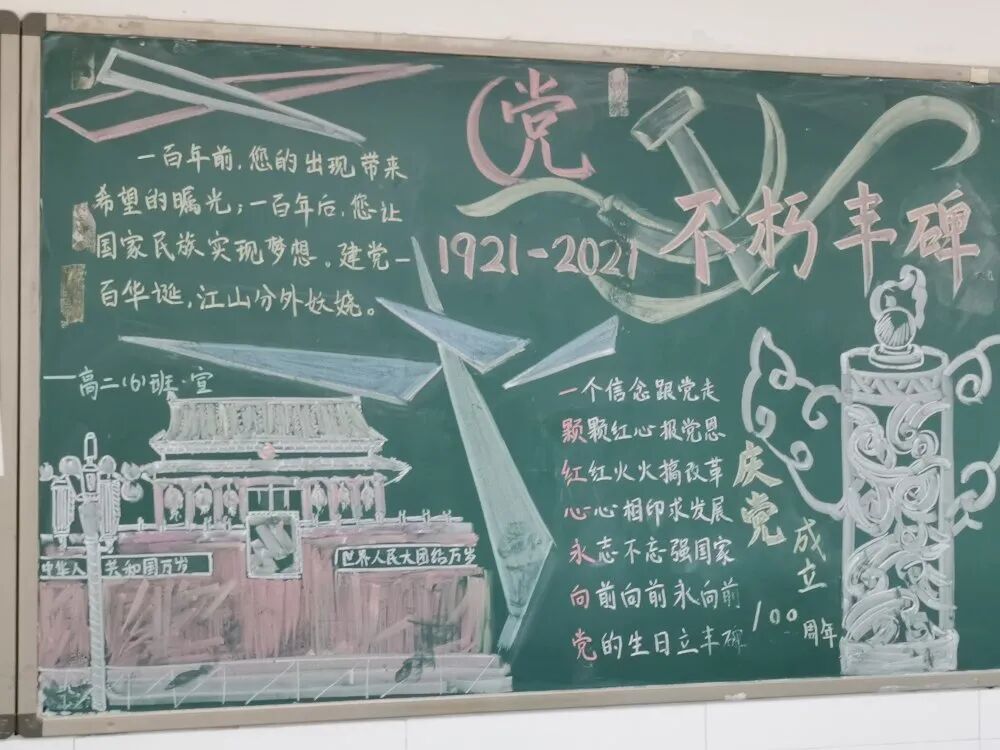 党
不朽丰碑
1921-2021
一百年前,您的出现带来
希望的曙光;一百年后,您让
国家民族实现梦想。建党一
百华诞,江山分外妖娆。
—高二(6)班·宣
中华人 共和国万岁
世界人民大团结万岁
一个信念跟党走
颗颗红心报党恩
红红火火搞改革
心心相印求发展
永志不忘强国家
向前向前永向前
党的生日立丰碑
庆党
成立
100
周年